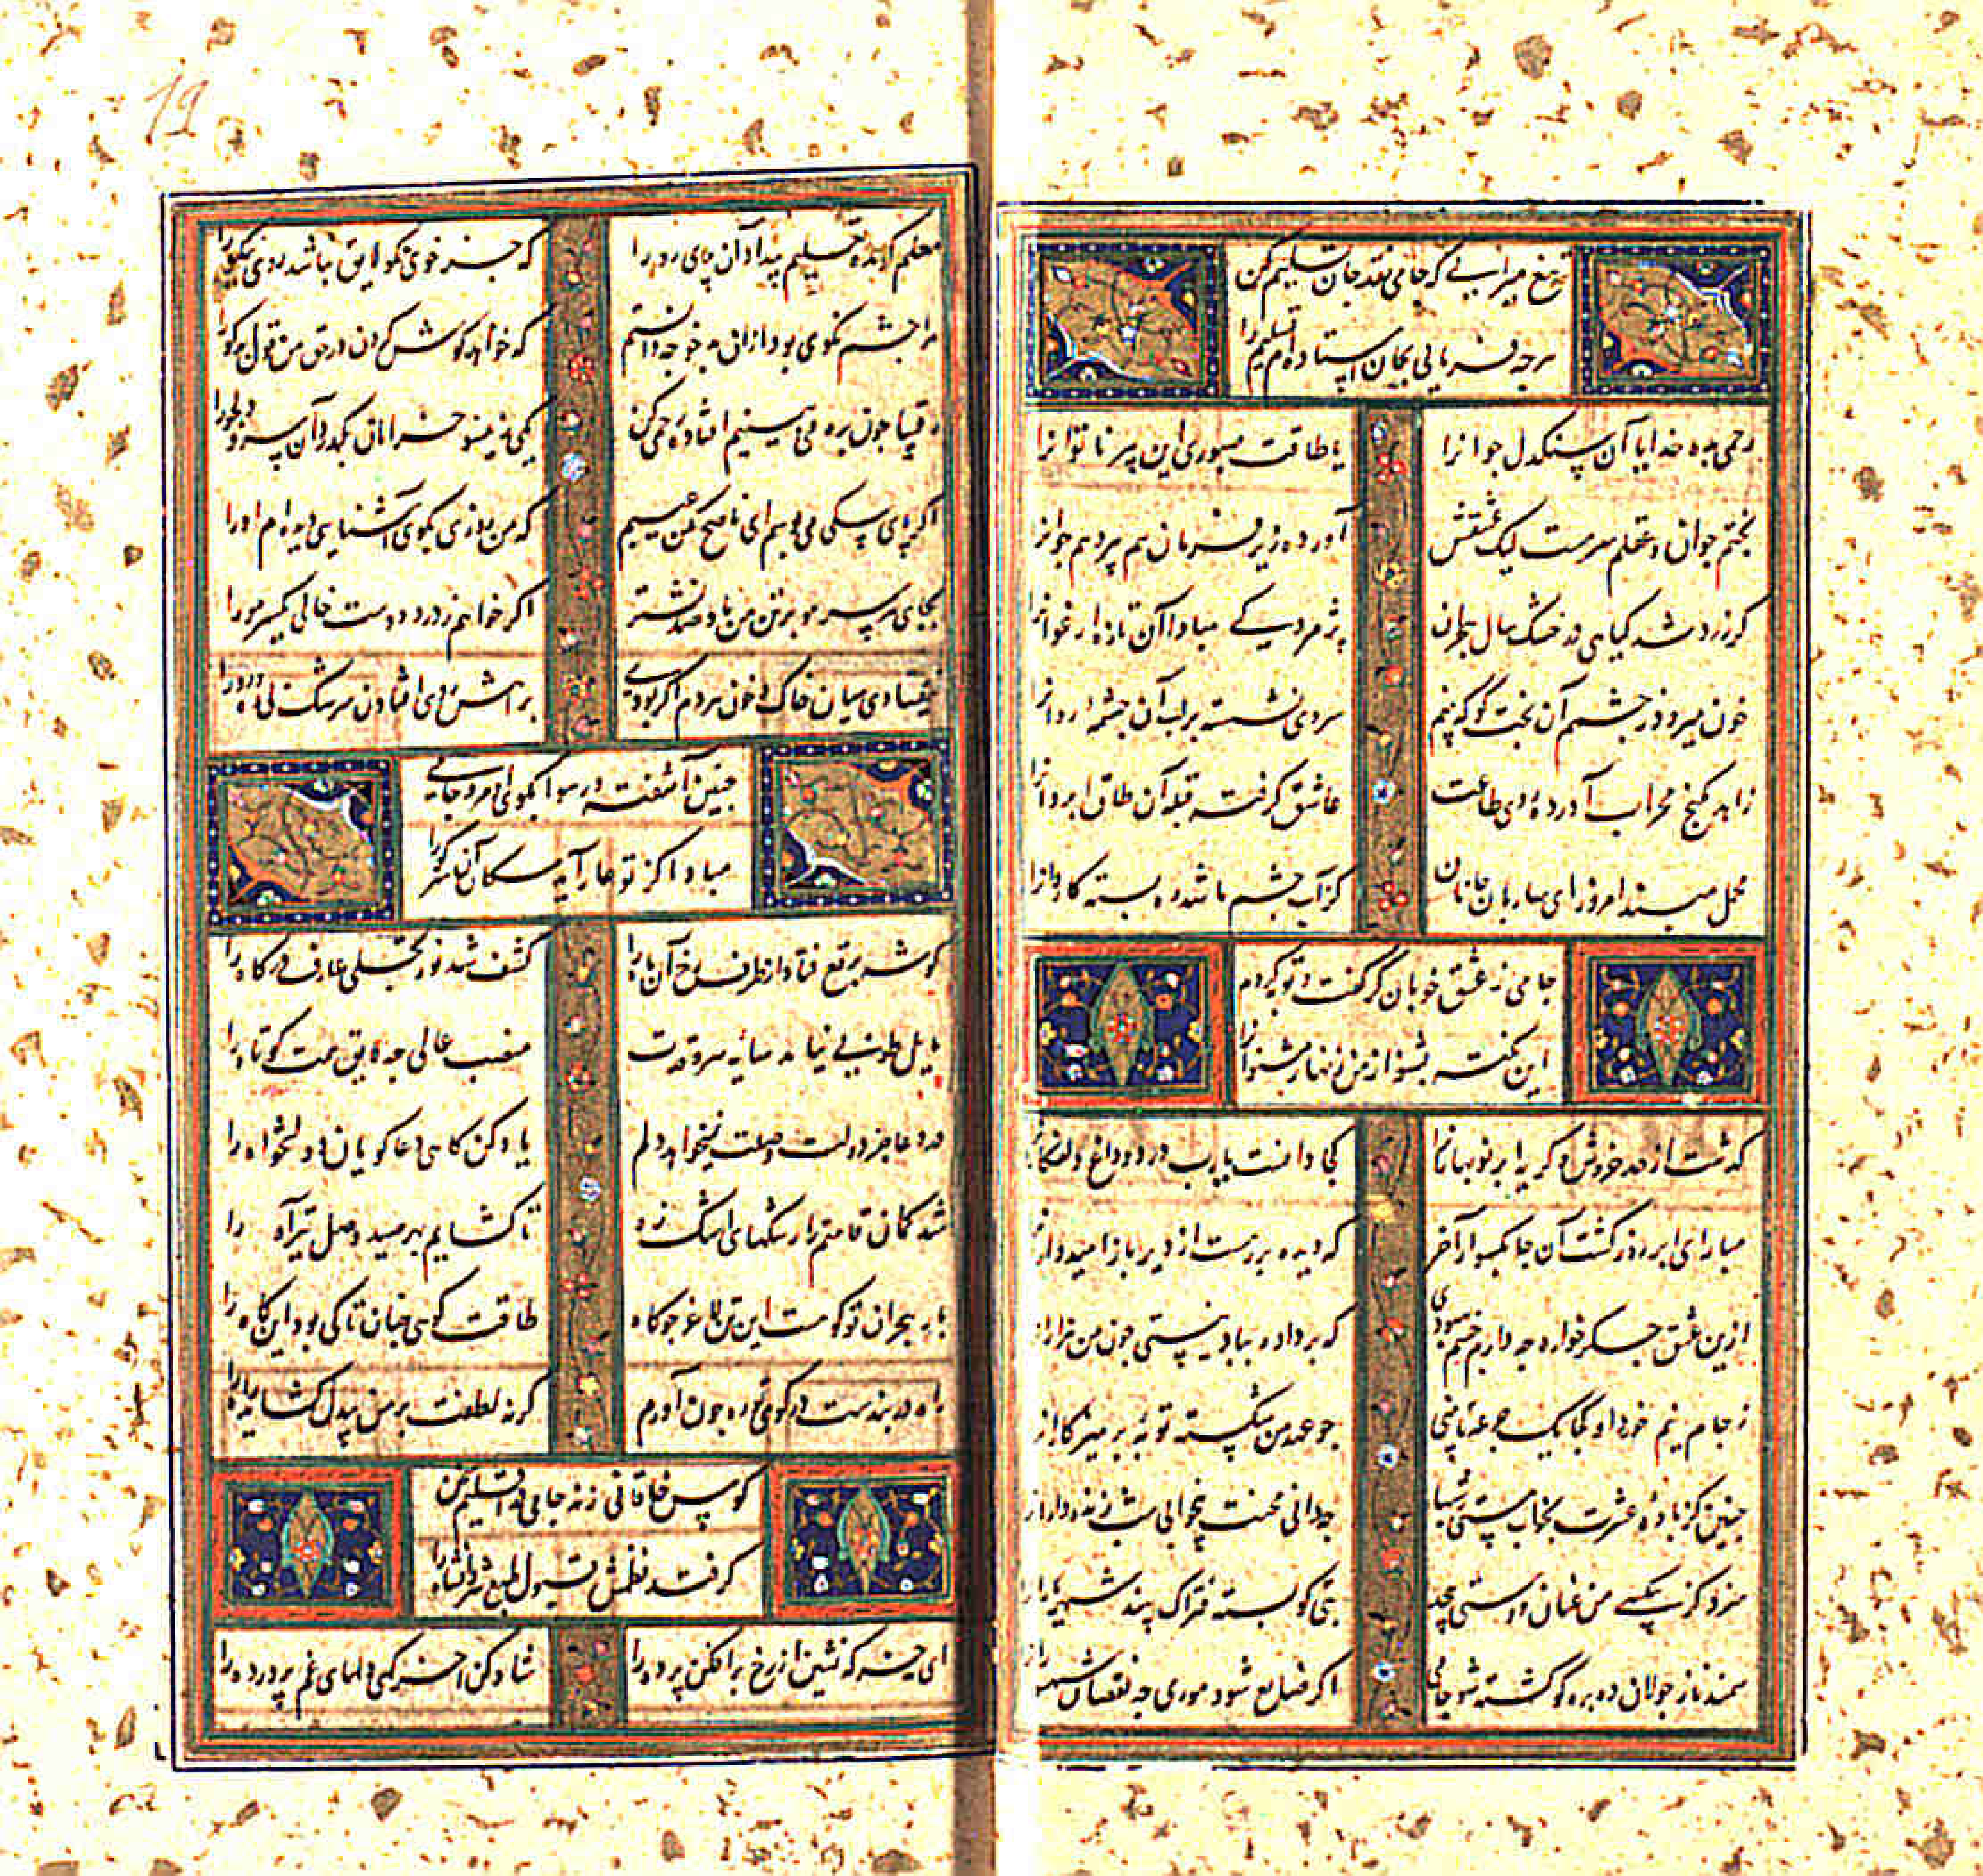 تیغ میرانی که جامی نقد جان تسلیم کن
هرچه فرمایی بجان استاده‌ام تسلیم را
رحمی بده خدایا آن سنکدل جوانرا
یا طاقت صبوری این پیر ناتوانرا
بختم جوان و عقلم سرمست لیک عشقش
آورده زیر فرمان هم پیر و هم جوانرا
کر زرد شد کیاهی در خشک سال هجران
پژمردیی مبادا آن تازه ارغوانرا
خون میرود ز چشمم آن بخت کو که بینم
سروی نشسته بر لب آن چشمهٔ روانرا
زاهد بکنج محراب آورده روی طاعت
عاشق کرفته قبله آن طاق ابروانرا
محمل مبند امروز ای ساربان جانان
کز آب چشم ما شد ره بسته کاروانرا
جامی ز عشق خوبان کر کفت توبه کردم
این نکته بشنو از من زنهار مشنو آنرا
کذشت از حد خروش و کریه ابر نوبهارانرا
کجا دانست یارب درد و داغ دلفکارانرا
مبار ای ابر در کشت آن چابکسوار آخر
که دیده بر رهست از دیر باز امیدوارانرا
ازین عشق جکرخواره چه دارم چشم بهبودی
که بر داد او بباد نیستی چون من هزارانرا
ز جام نیم خورد او کجا یک جرعه تا بینی
چو عهد من شکسته توبهٔ پرهیزکارانرا
چنین کز بادهٔ عشرت بخواب مستی شبها
چه دانی محنت بیخوابی شب زنده دارانرا
بتی کو بسته فتراک بیند شهسوارانرا
سمند ناز جولان ده بره کو کشته شو جامی
اکر ضایع شود موری چه نقصان شهسوارانرا
معلم کو مده تعلیم بیداد آن پری رو را
که جز خوی نکو لایق نباشد روی نیکو را
مرا چشم نکویی بود ازان بدخو چه دانستم
که خواهد کوش کردن در حق من قول بدکو را
رقیبا چون بره می‌بینیم افتاده رحمی کن
دمی نه یکسو خرامان بکذرد آن سرو دلجو را
اکر پای سکی می‌بوسم ای ناصح مکن عیبم
که من روزی بکوی آشنایی دیده‌ام او را
بجای هر سر مو بر تن من باد صد نشتر
اکر خواهم ز درد دوست خالی یکسر مو را
نیفتادی میان خاک و خون مردم اکر بودی
براهش روی افتادن سرشک لاله‌کون رو را
چنین آشفته و رسوا بکوی او مرو جامی
مبادا کز تو عار آید سکان آن سر کو را
کوشه برقع فتاد از طرف رخ آن ماه را
کشف شد نور تجلی عارف درکاه را
مایل طوبی نیامد سایه سرو قدت
منصب عالی چه لایق همت کوتاه را
ورد عاجز دولت وصلت نمیخواهد دلم
یاد کن کاهی دعاکویان دولتخواه را
شد کمان قامتم را رشتهای اشک زه
تا کشایم بهر صید وصل تیر آه را
بار هجران تو کوهست این تن لاغر چو کاه
طاقت کوهی چنان تا کی بود این کاه را
راه در بندست در کوی تو ره چون آورم
کرنه لطفت بر من بیدل کشاید راه را
کوس خاقانی زند جامی در اقلیم سخن
کر فتد نظمش قبول طبع شروانشاه را
ای خیز که نشین از رخ برافکن پرده را
شاد کن آخر کهی دلهای غم پرورده را